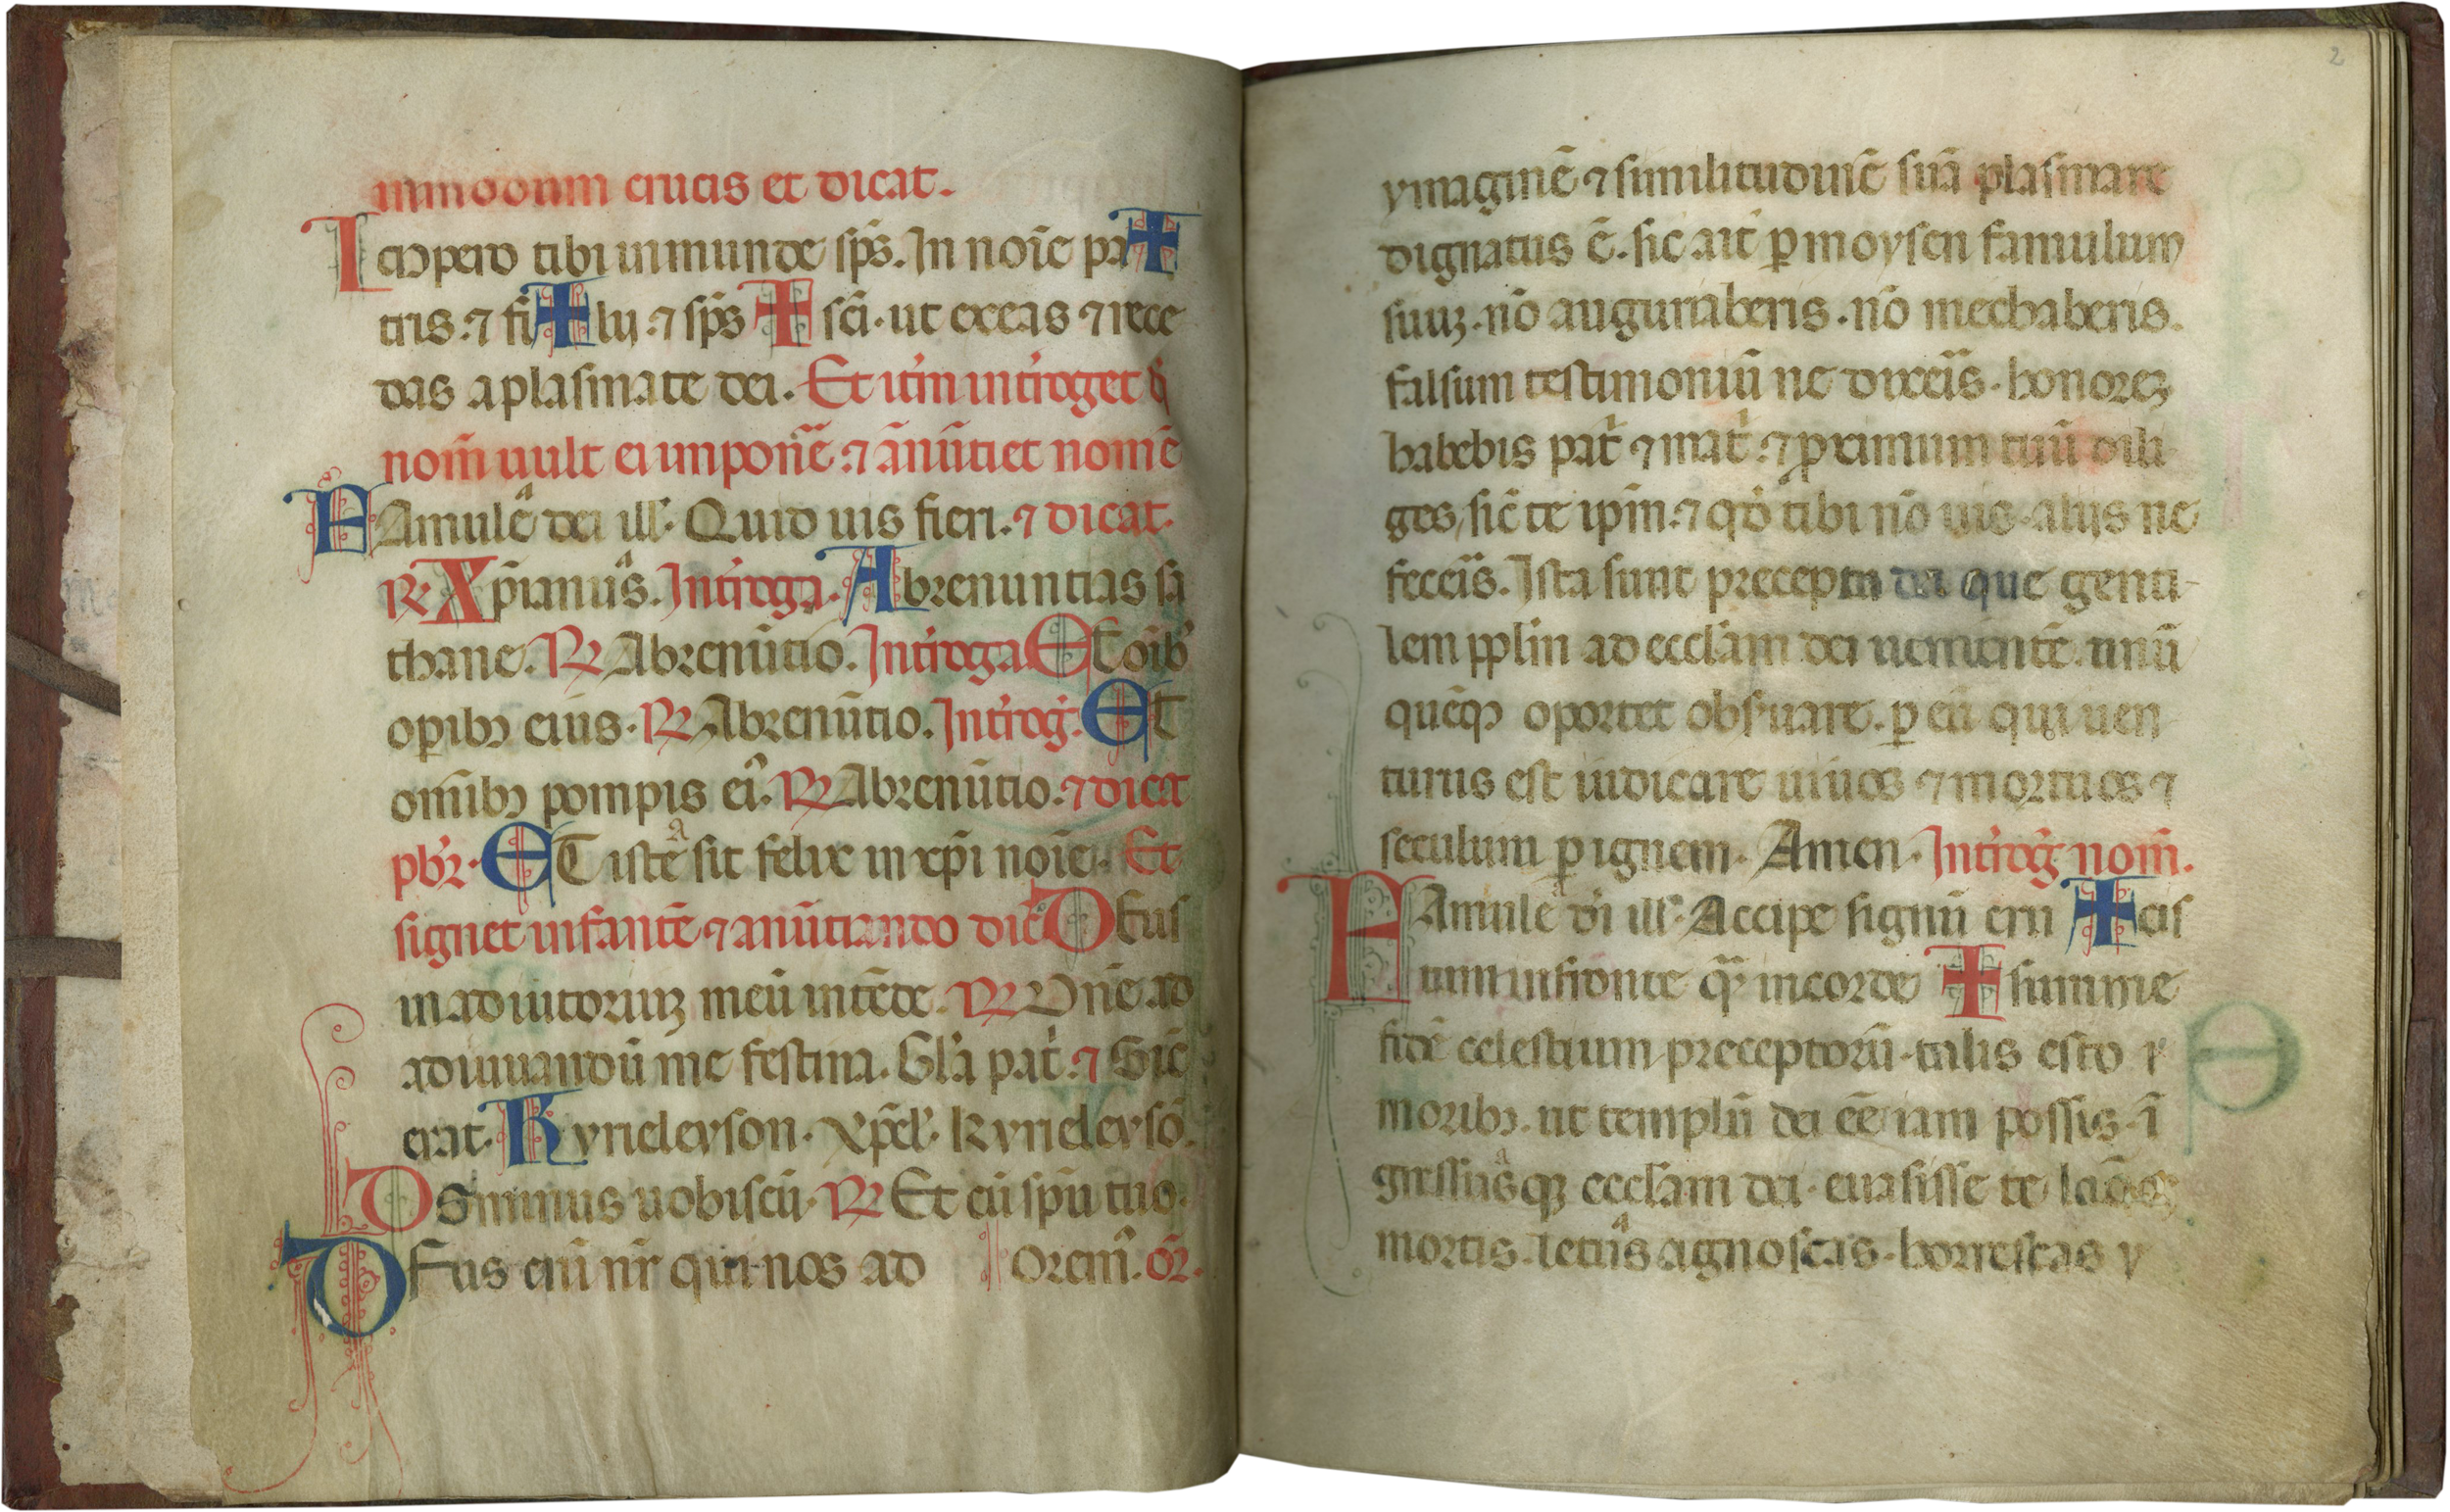 in modum crucis et dicat.
Icɔpero tibi inmunde sp̄s. In noīe pa✝
tris. ⁊ fi✝lij. ⁊ sp̄s ✝ sc̄i. ut exeas ⁊ rece
das a plasmate dei. Et itm̄ int̓roget q̓
nom̄ uult ei imponē̓. ⁊ ānūtiet nomē
FAmulēᵃ dei ill̓. Quid uis fieri. ⁊ dicat.
R. Xp̄ianuˢᵃ. Int̓roga. Abrenuntias sa
thane. R Abrenūtio. Int̓roga ET oīb̓
op̱ibꝫ eius. R Abrenūtio. Int̓rog̓. ET
om̄ibꝫ pompis ei̓. R Abrenūtio. ⁊ dicat
pb̓r. ET isteᵃ sit felix in xp̄i noīe. Et
signet infantē ⁊ anūtiando dic̄ DEus
in adiutoriuꝫ meū intēde. R Dn̄e ad
adiuuandū me festina. Gl̓a pat̓. ⁊ Sic̄
erat. Kyrieleyson. Xp̄el̓. Kyrieleysō.
DOminus uobiscū. R Et cū sp̄u tuo.
DEus eiū nr̄ qui nos ad Orem̓. or̄.
2
ymaginē ⁊ similitudinē suā plasmare
dignatus ē. sic ait p̱ moysen famulum
suuꝫ. nō auguriaberis. nō mechaberis.
falsum testimoniū ne dixeīs. honoreꝫ
habebis pat̓ ⁊ mat̓. ⁊ p̱ximum tuū dili
ges, sic̄ te ipm̄. ⁊ qd̓ tibi nō uis. alijs ne
feceīs. Ista sunt precepta dei que genti-
lem pp̱lm̄ ad eccl̓am dei uenientē. unū
quēqꝫ oportet obs̓uare. p̱ eū qui uen
turus est iudicare uiuos ⁊ mortuos ⁊
seculum p̱ ignem. Amen. Int̓rog̓ nom̄.
FAmuleᵃ dī ill̓. Accipe signū cru ✝ cis
tam in fronte qᷓ in corde ✝ summe
fidē celestium preceptorū. talis esto ⁊
moribꝫ. ut templū dei eē iam possis. ī
gressuˢᵃqꝫ eccl̓am dei. euasisse te laq̄os
mortis. letuˢᵃ agnoscas. horrescas y